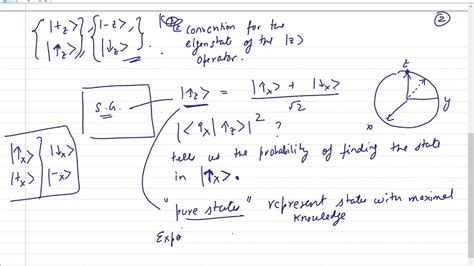 ②
{|+z>, |↑z>}, {|-z>, |↓z>} convention for the
eigenstate of the |z>
operator.
S.G. |↑z> = |↑x> + |↓x> / √2
z
y
|<↑x|↑z>|² ?
tells us the probability of finding the state
in |↑x>.
|↑x> |↓x>
|+x> |-x>
"pure states" represent states with maximal
knowledge
Expo